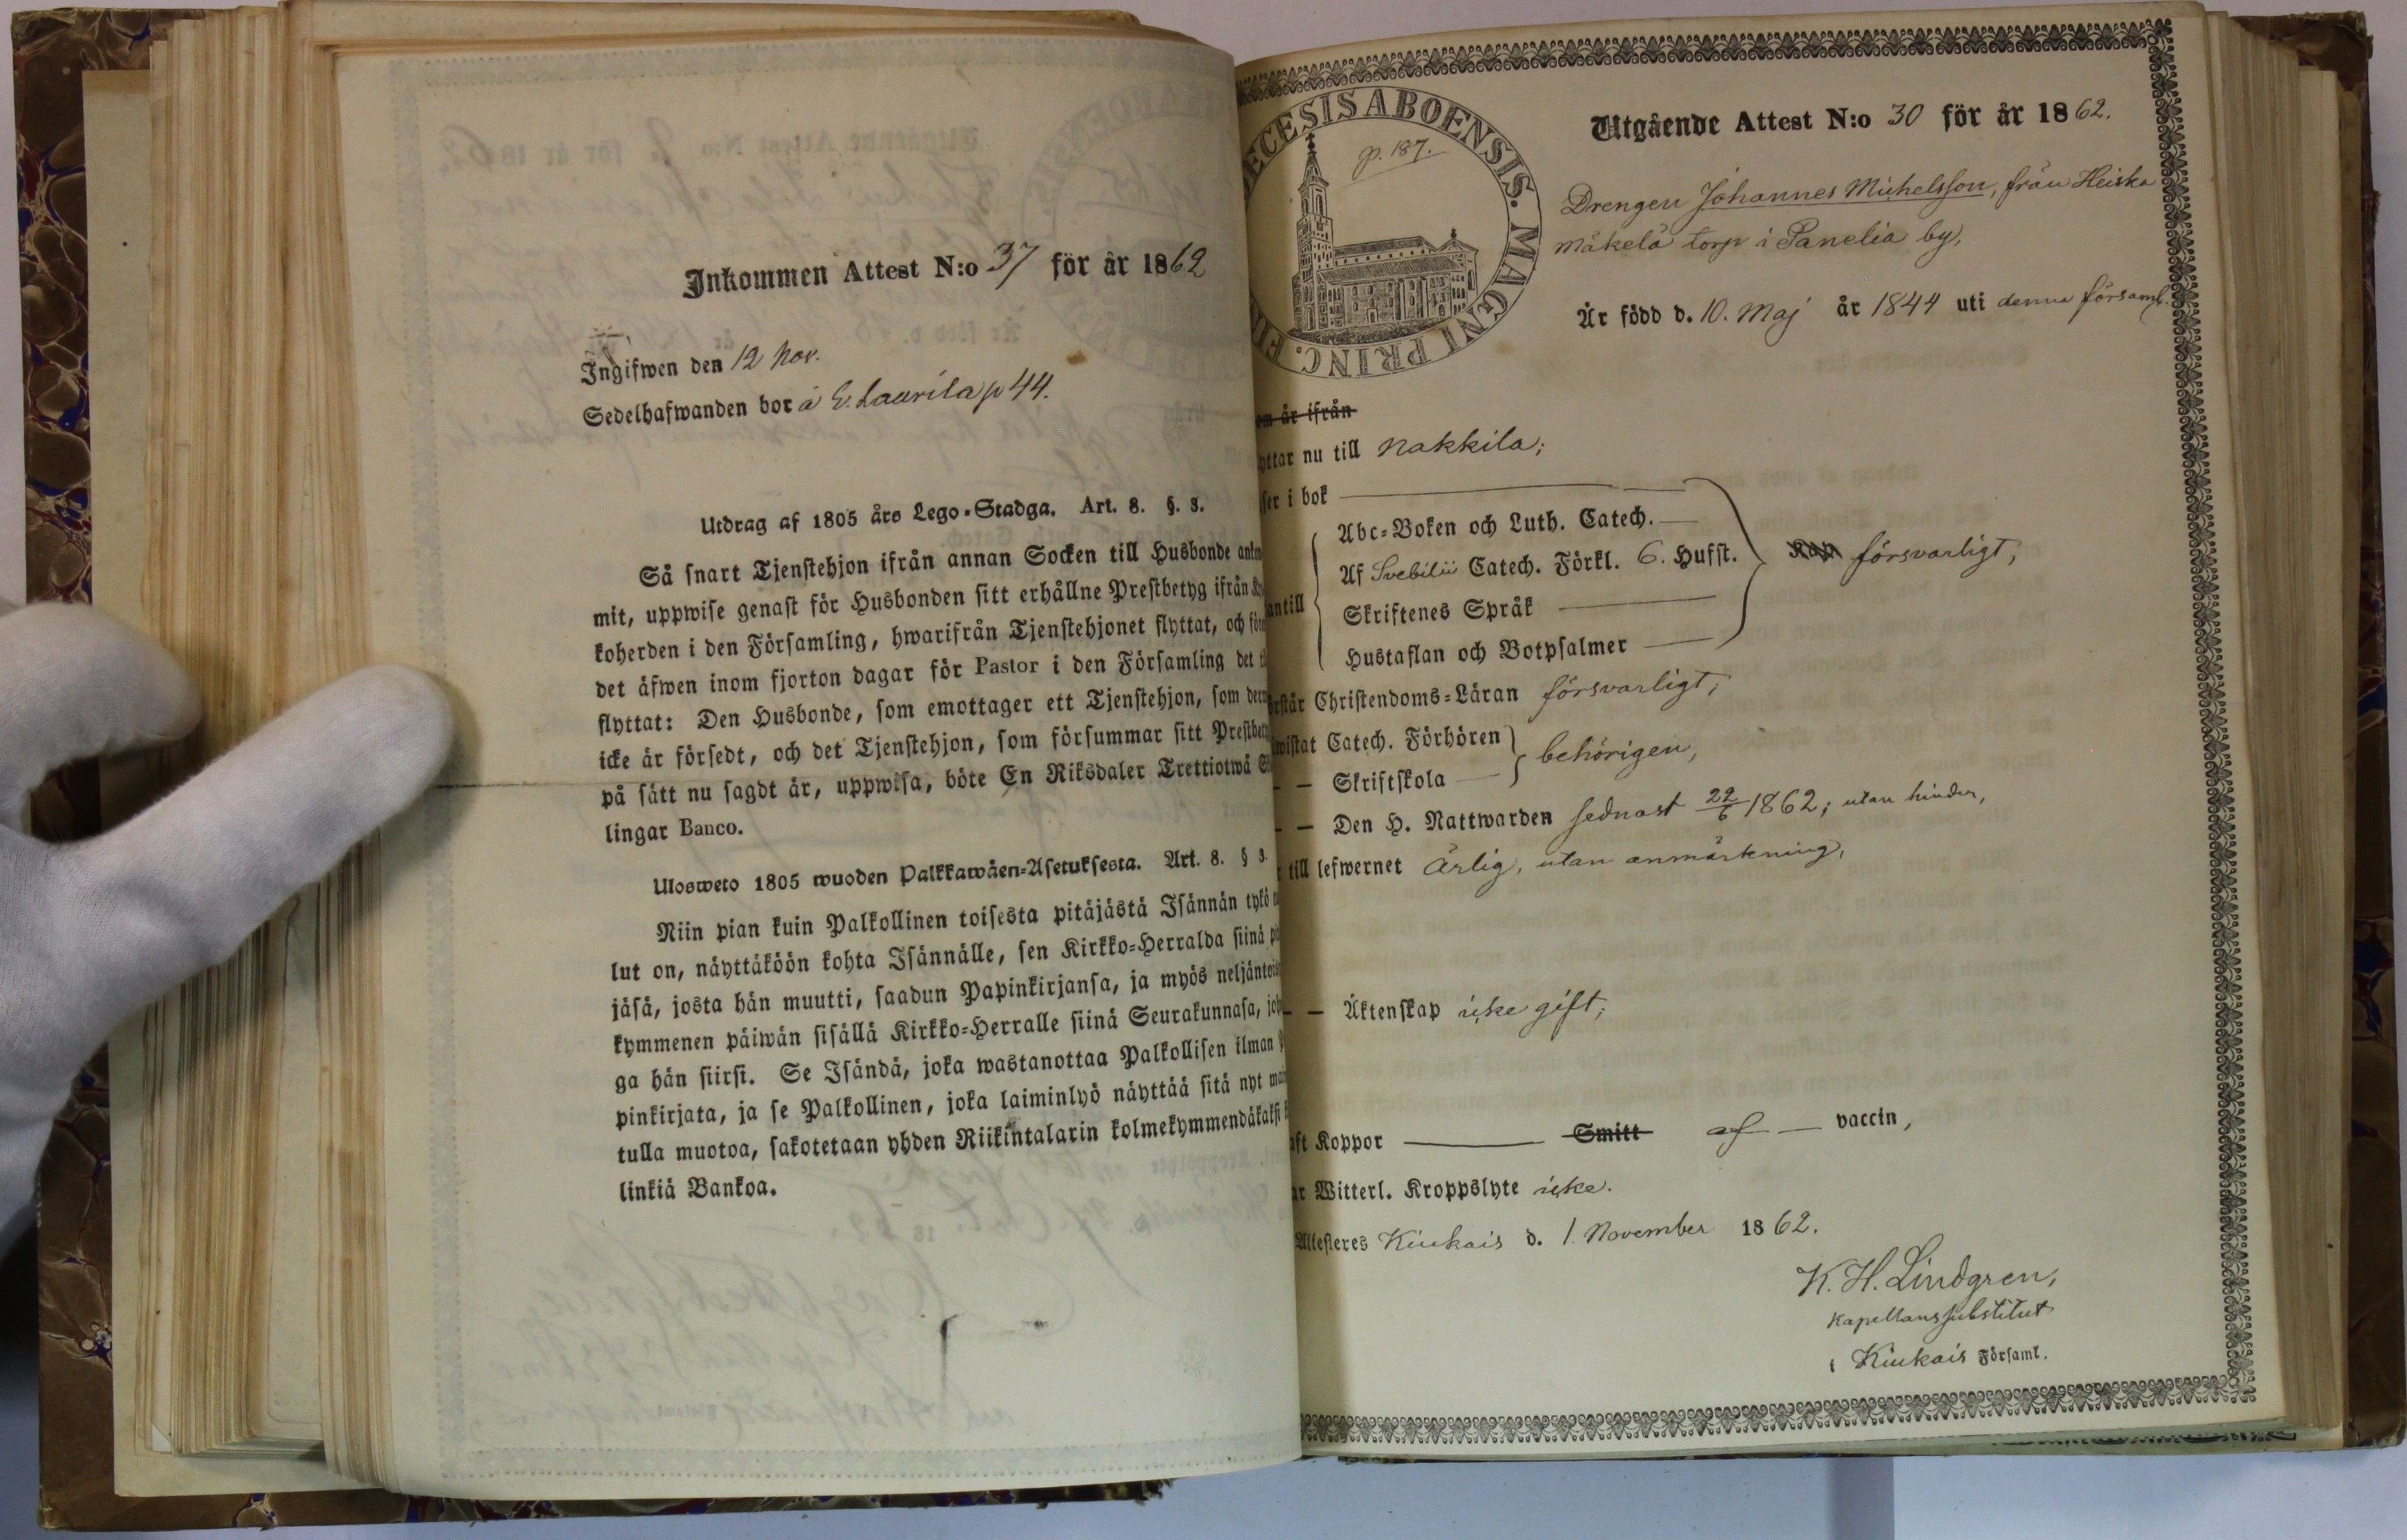 Inkommen Attest N:o 37 för år 1862
Ingifwen den 12 Nov.
Sedelhafwanden bor å L. Laurila p 44.
Utdrag af 1805 års Lego-Stadga. Art. 8. §. 3.
Så snart Tjenstehjon ifrån annan Socken till Husbonde
mit, uppwise genast för Husbonden sitt erhållne Prestbetyg ifrån
koherden i den Församling, hwarifrån Tjenstehjonet flyttat, och
det äfwen inom fjorton dagar för Pastor i den Församling det
flyttat: Den Husbonde, som emottager ett Tjenstehjon, som
icke är försedt, och det Tjenstehjon, som försummar sitt
på sätt nu sagdt är, uppwisa, böte En Riksdaler Trettiotwå
lingar Banco.
Ulosweto 1805 wuoden Palkkawäen-Asetuksesta. Art. 8. § 3.
Niin pian kuin Palkollinen toisesta pitäjästä Isännän tykö
lut on, näyttäköön kohta Isännälle, sen Kirkko-Herralda siinä
jäsä, josta hän muutti, saadun Papinkirjansa, ja myös
kymmenen päiwän sisällä Kirkko-Herralle siinä Seurakunnasa,
ga hän siirsi. Se Isändä, joka wastanottaa Palkollisen ilman
pinkirjata, ja se Palkollinen, joka laiminlyö näyttää sitä nyt
tulla muotoa, sakotetaan yhden Riikintalarin kolmekymmendäkaksi
linkiä Bankoa.
ECESIS ABOENSIS. MAGNI PRINC. FI
p. 187.
Utgående Attest N:o 30 för år 1862.
Drengen Johannes Michelsson, från Heiska
Mäkelä torp i Panelia by,
Är född d. 10. Maj år 1844 uti denna församl.
om är ifrån
yttar nu till Nakkila;
ser i bok
Abc-Boken och Luth. Catech.
Af Svebilii Catech. Förkl. 6. Hufst. försvarligt,
antill
Skriftenes Språk
Hustaflan och Botpsalmer
rstår Christendoms-Läran försvarligt,
wistat Catech. Förhören
behörigen,
— Skriftskola
— — Den H. Nattwarden sednast 22/6 1862; utan hinder,
till lefwernet Ärlig, utan anmärkning,
— — Äktenskap icke gift;
aft Koppor Smitt af vaccin,
ar Witterl. Kroppslyte icke.
Attesteres Kiukais d. 1. November 1862.
K. H. Lindgren,
Kapellanssubstitut
i Kiukais Församl.